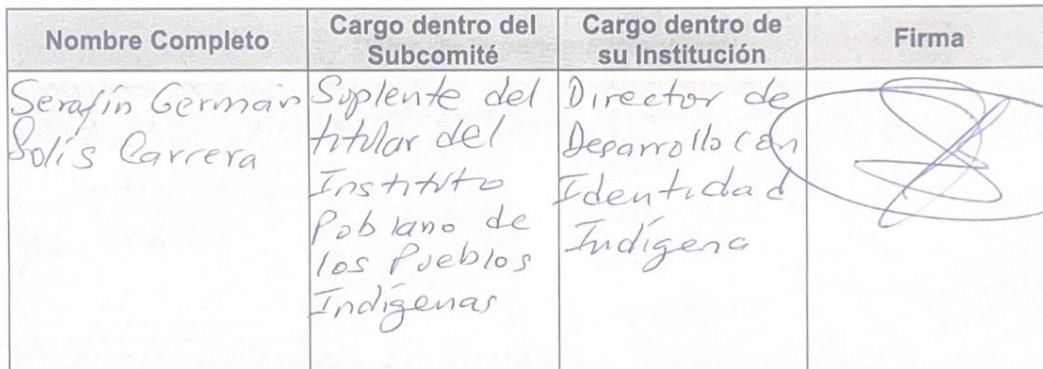 Nombre Completo
Cargo dentro del
Subcomité
Cargo dentro de
su Institución
Firma
Serafín Germán
Solís Carrera
Suplente del
titular del
Instituto
Poblano de
los Pueblos
Indígenas
Director de
Desarrollo con
Identidad
Indígena